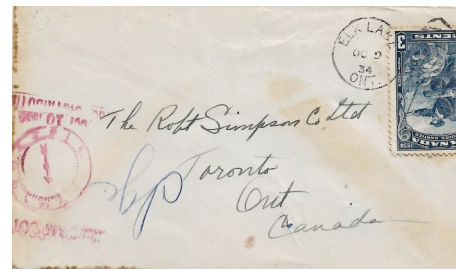 ELK LAKE
OC 9
34
ONT.
3 CENTS
CANADA
The Robt Simpson Co. Ltd
Toronto
Ont
Canada
OCT 10